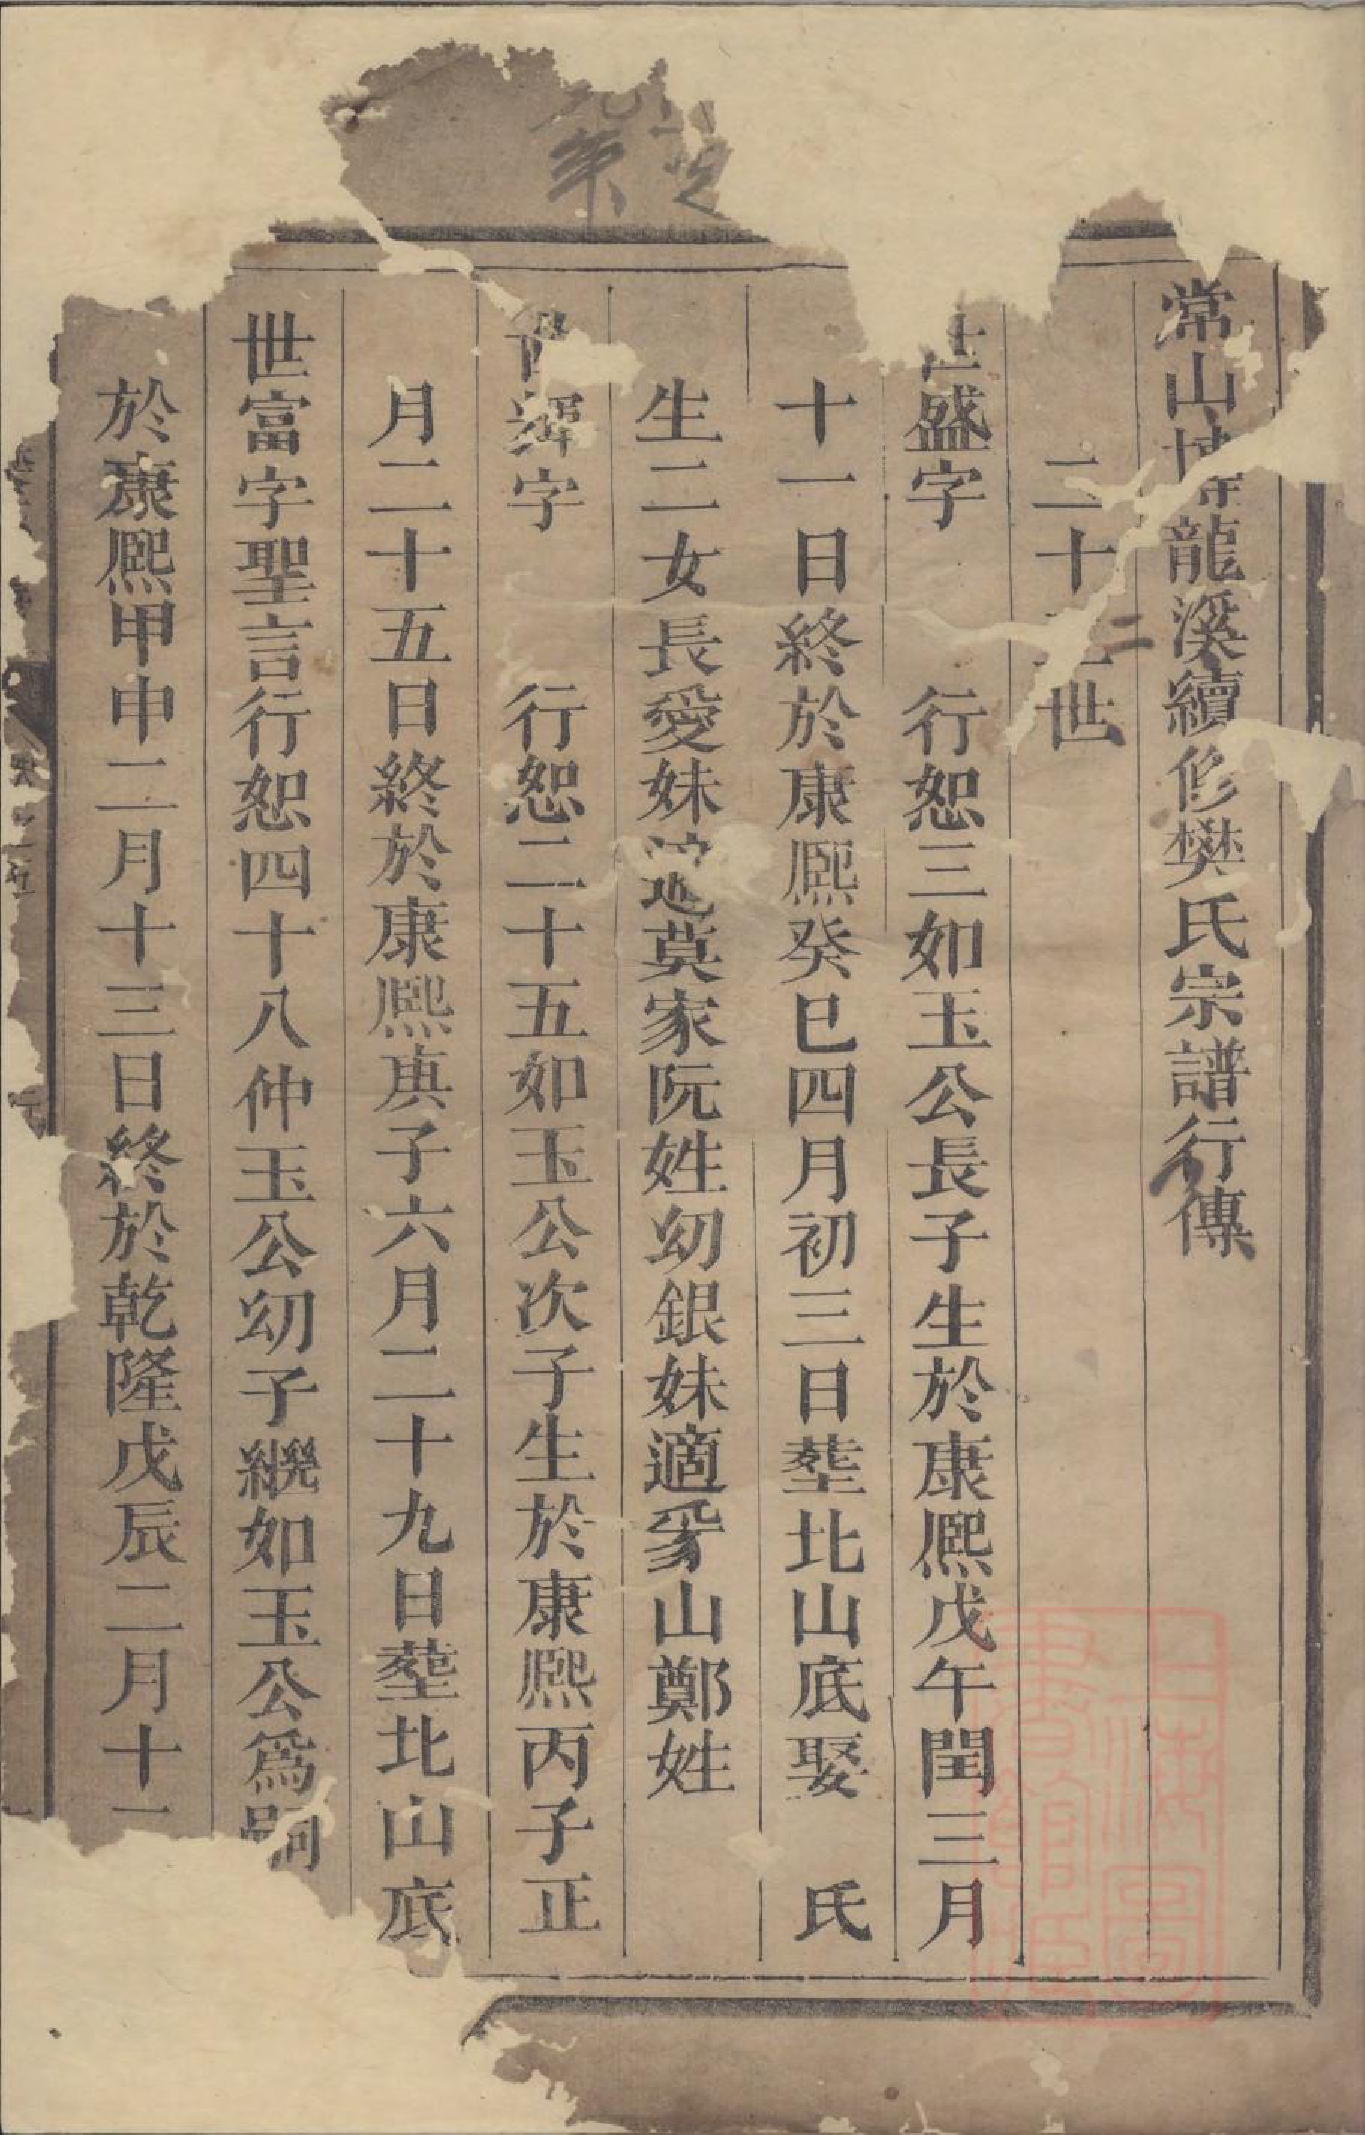 常山博龍溪續修樊氏宗譜行傳
二十 世
二
世盛字 行恕三如玉公長子生於康熙戊午閏三月
十一日終於康熙癸巳四月初三日塟北山底娶 氏
生二女長愛妹適莫家阮姓幼銀妹適豸山鄭姓
字 行恕二十五如玉公次子生於康熙丙子正
月二十五日終於康熙庚子六月二十九日塟北山底
世富字聖言行恕四十八仲玉公幼子繼如玉公爲嗣
於康熙甲申二月十三日終於乾隆戊辰二月十
上海圖書館藏